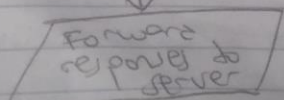 Forward
responses to
server